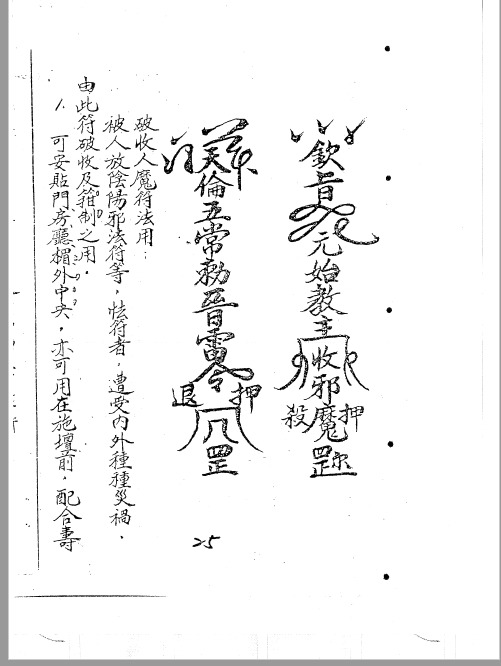 欽旨元始教主收邪魔罡
押
殺
天倫五常勅令
押
退
罡
破收人魔符法用：
被人放陰陽邪法符等，怯符者，遭受內外種種災禍，
由此符破收及箝制之用。
1. 可安貼門房廳楣外中央，亦可用在施壇前，配合壽
25